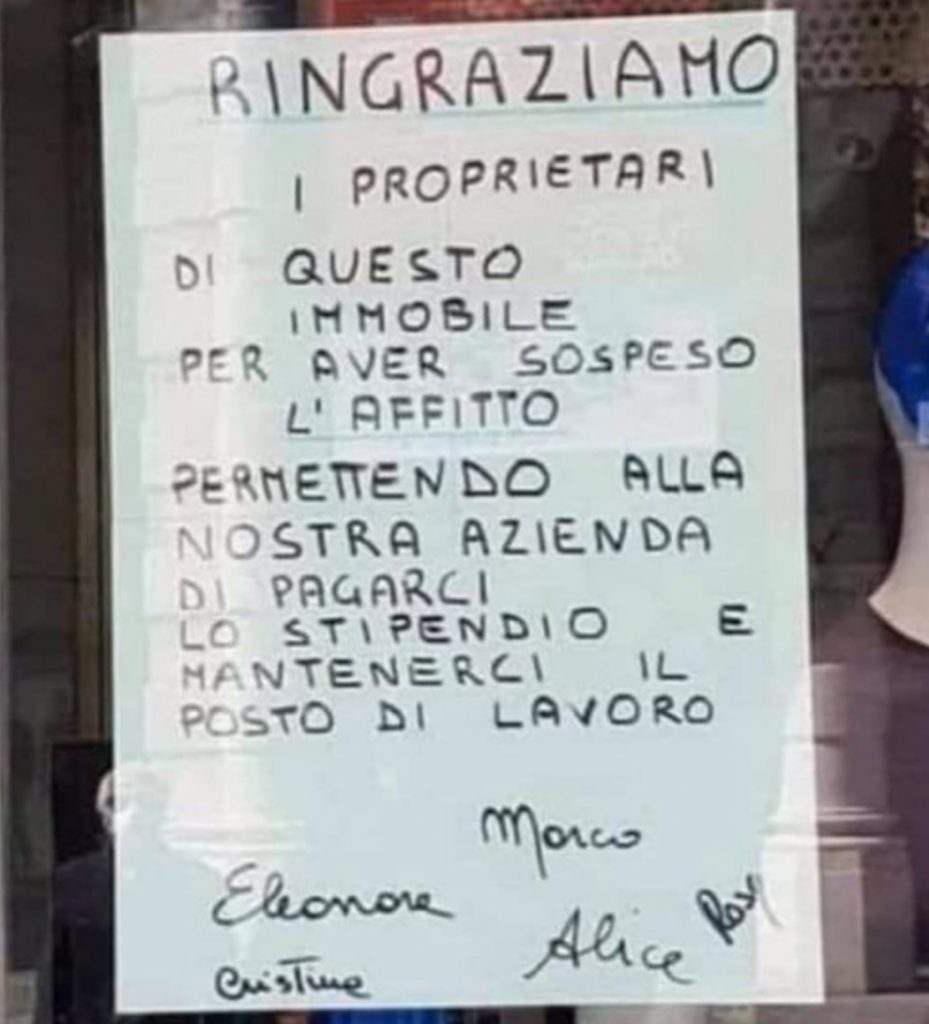 RINGRAZIAMO
I PROPRIETARI
DI QUESTO
IMMOBILE
PER AVER SOSPESO
L'AFFITTO
PERMETTENDO ALLA
NOSTRA AZIENDA
DI PAGARCI
LO STIPENDIO E
MANTENERCI IL
POSTO DI LAVORO
Marco
Eleonora
Alice Rosy
Cristina